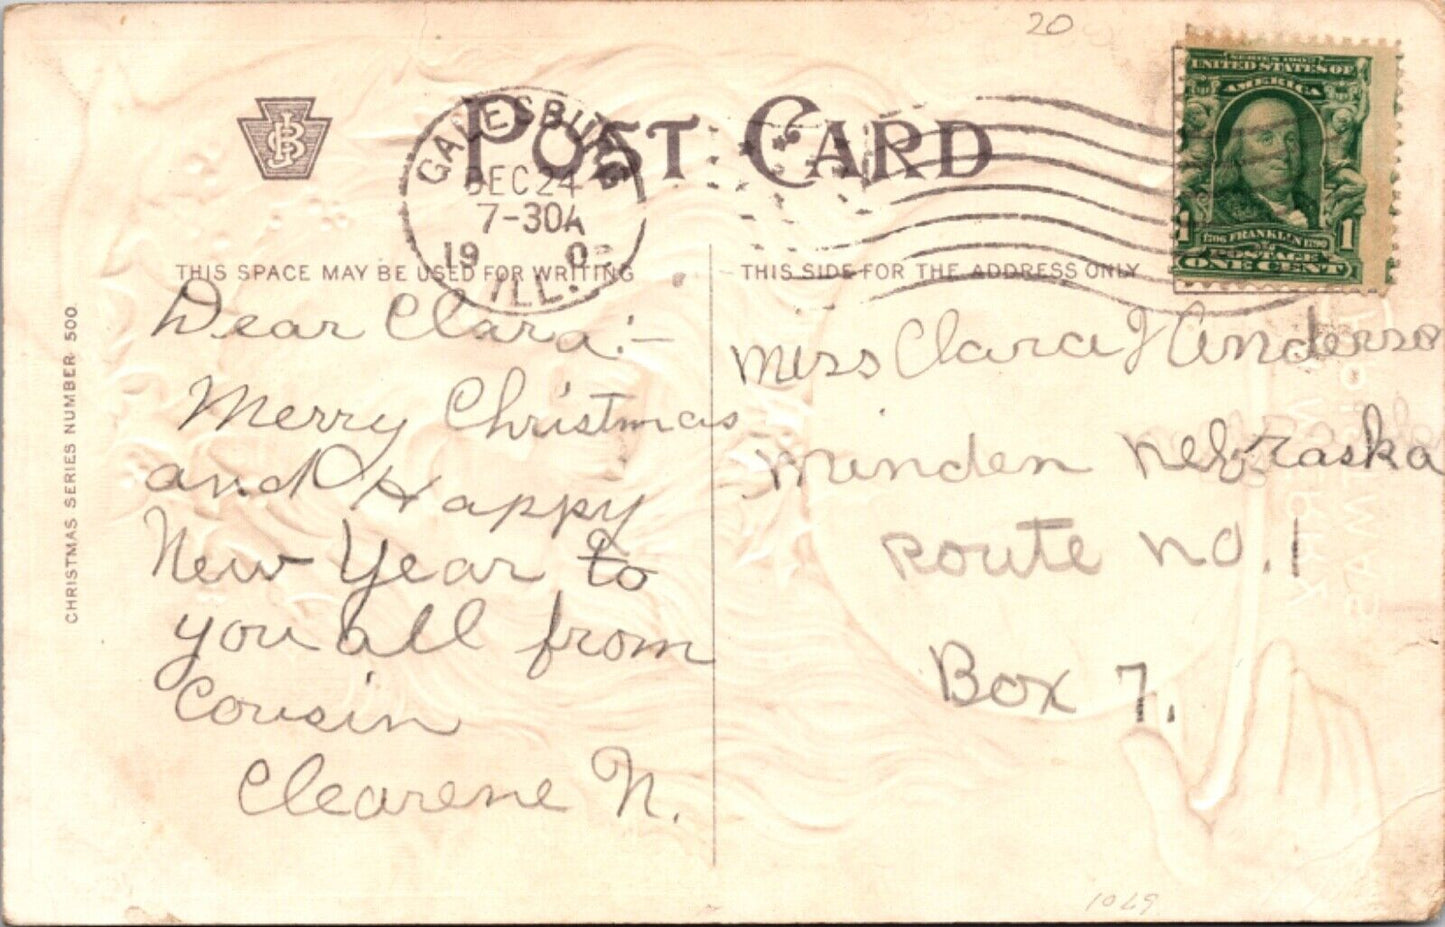 20
POST CARD
GALESBURG
DEC 24
7-30A
19 0
ILL.
SERIES 1902
UNITED STATES OF
AMERICA
1706 FRANKLIN 1790
1 1
POSTAGE
ONE CENT
THIS SPACE MAY BE USED FOR WRITING
THIS SIDE FOR THE ADDRESS ONLY
CHRISTMAS SERIES NUMBER 500
Dear Clara:-
Merry Christmas
and Happy
New Year to
you all from
Cousin
Clearene N.
Miss Clara J Anderso
Minden Nebraska
Route No. 1
Box 7.
1069